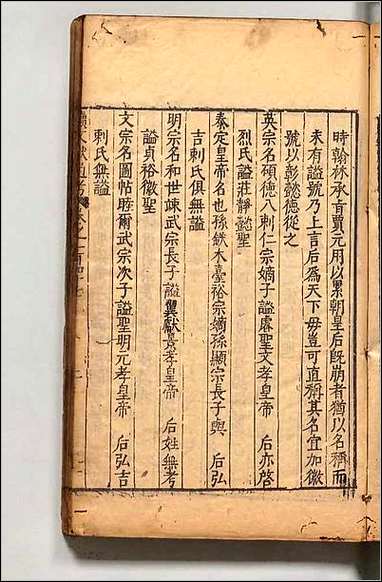 時翰林承旨賈元用以累朝皇后旣崩者猶以名稱而
未有諡號乃上言后爲天下母豈可直稱其名宜加徽
號以彰懿德從之
英宗名碩德八剌仁宗嫡子諡睿聖文孝皇帝 后亦啓
烈氏諡莊靜懿聖
泰定皇帝名也孫鉄木臺裕宗嫡孫顯宗長子輿 后弘
吉剌氏俱無諡
明宗名和世㻋武宗長子諡翼獻景孝皇帝 后姓無考
諡貞裕徽聖
文宗名圖帖睦爾武宗次子諡聖明元孝皇帝 后弘吉
剌氏無諡